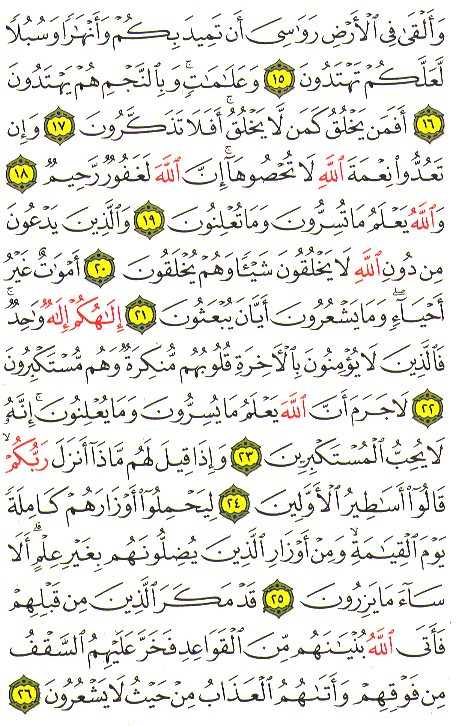 وَأَلْقَىٰ فِى ٱلْأَرْضِ رَوَٰسِىَ أَن تَمِيدَ بِكُمْ وَأَنْهَٰرًا وَسُبُلًا
لَّعَلَّكُمْ تَهْتَدُونَ ١٥ وَعَلَٰمَٰتٍ ۚ وَبِٱلنَّجْمِ هُمْ يَهْتَدُونَ
١٦ أَفَمَن يَخْلُقُ كَمَن لَّا يَخْلُقُ ۗ أَفَلَا تَذَكَّرُونَ ١٧ وَإِن
تَعُدُّوا۟ نِعْمَةَ ٱللَّهِ لَا تُحْصُوهَآ ۗ إِنَّ ٱللَّهَ لَغَفُورٌ رَّحِيمٌ ١٨
وَٱللَّهُ يَعْلَمُ مَا تُسِرُّونَ وَمَا تُعْلِنُونَ ١٩ وَٱلَّذِينَ يَدْعُونَ
مِن دُونِ ٱللَّهِ لَا يَخْلُقُونَ شَيْـًٔا وَهُمْ يُخْلَقُونَ ٢٠ أَمْوَٰتٌ غَيْرُ
أَحْيَآءٍ ۖ وَمَا يَشْعُرُونَ أَيَّانَ يُبْعَثُونَ ٢١ إِلَٰهُكُمْ إِلَٰهٌ وَٰحِدٌ ۚ
فَٱلَّذِينَ لَا يُؤْمِنُونَ بِٱلْـَٔاخِرَةِ قُلُوبُهُم مُّنكِرَةٌ وَهُم مُّسْتَكْبِرُونَ
٢٢ لَا جَرَمَ أَنَّ ٱللَّهَ يَعْلَمُ مَا يُسِرُّونَ وَمَا يُعْلِنُونَ ۚ إِنَّهُۥ
لَا يُحِبُّ ٱلْمُسْتَكْبِرِينَ ٢٣ وَإِذَا قِيلَ لَهُم مَّاذَآ أَنزَلَ رَبُّكُمْ ۙ
قَالُوٓا۟ أَسَٰطِيرُ ٱلْأَوَّلِينَ ٢٤ لِيَحْمِلُوٓا۟ أَوْزَارَهُمْ كَامِلَةً
يَوْمَ ٱلْقِيَٰمَةِ ۙ وَمِنْ أَوْزَارِ ٱلَّذِينَ يُضِلُّونَهُم بِغَيْرِ عِلْمٍ ۗ أَلَا
سَآءَ مَا يَزِرُونَ ٢٥ قَدْ مَكَرَ ٱلَّذِينَ مِن قَبْلِهِمْ
فَأَتَى ٱللَّهُ بُنْيَٰنَهُم مِّنَ ٱلْقَوَاعِدِ فَخَرَّ عَلَيْهِمُ ٱلسَّقْفُ
مِن فَوْقِهِمْ وَأَتَىٰهُمُ ٱلْعَذَابُ مِنْ حَيْثُ لَا يَشْعُرُونَ ٢٦